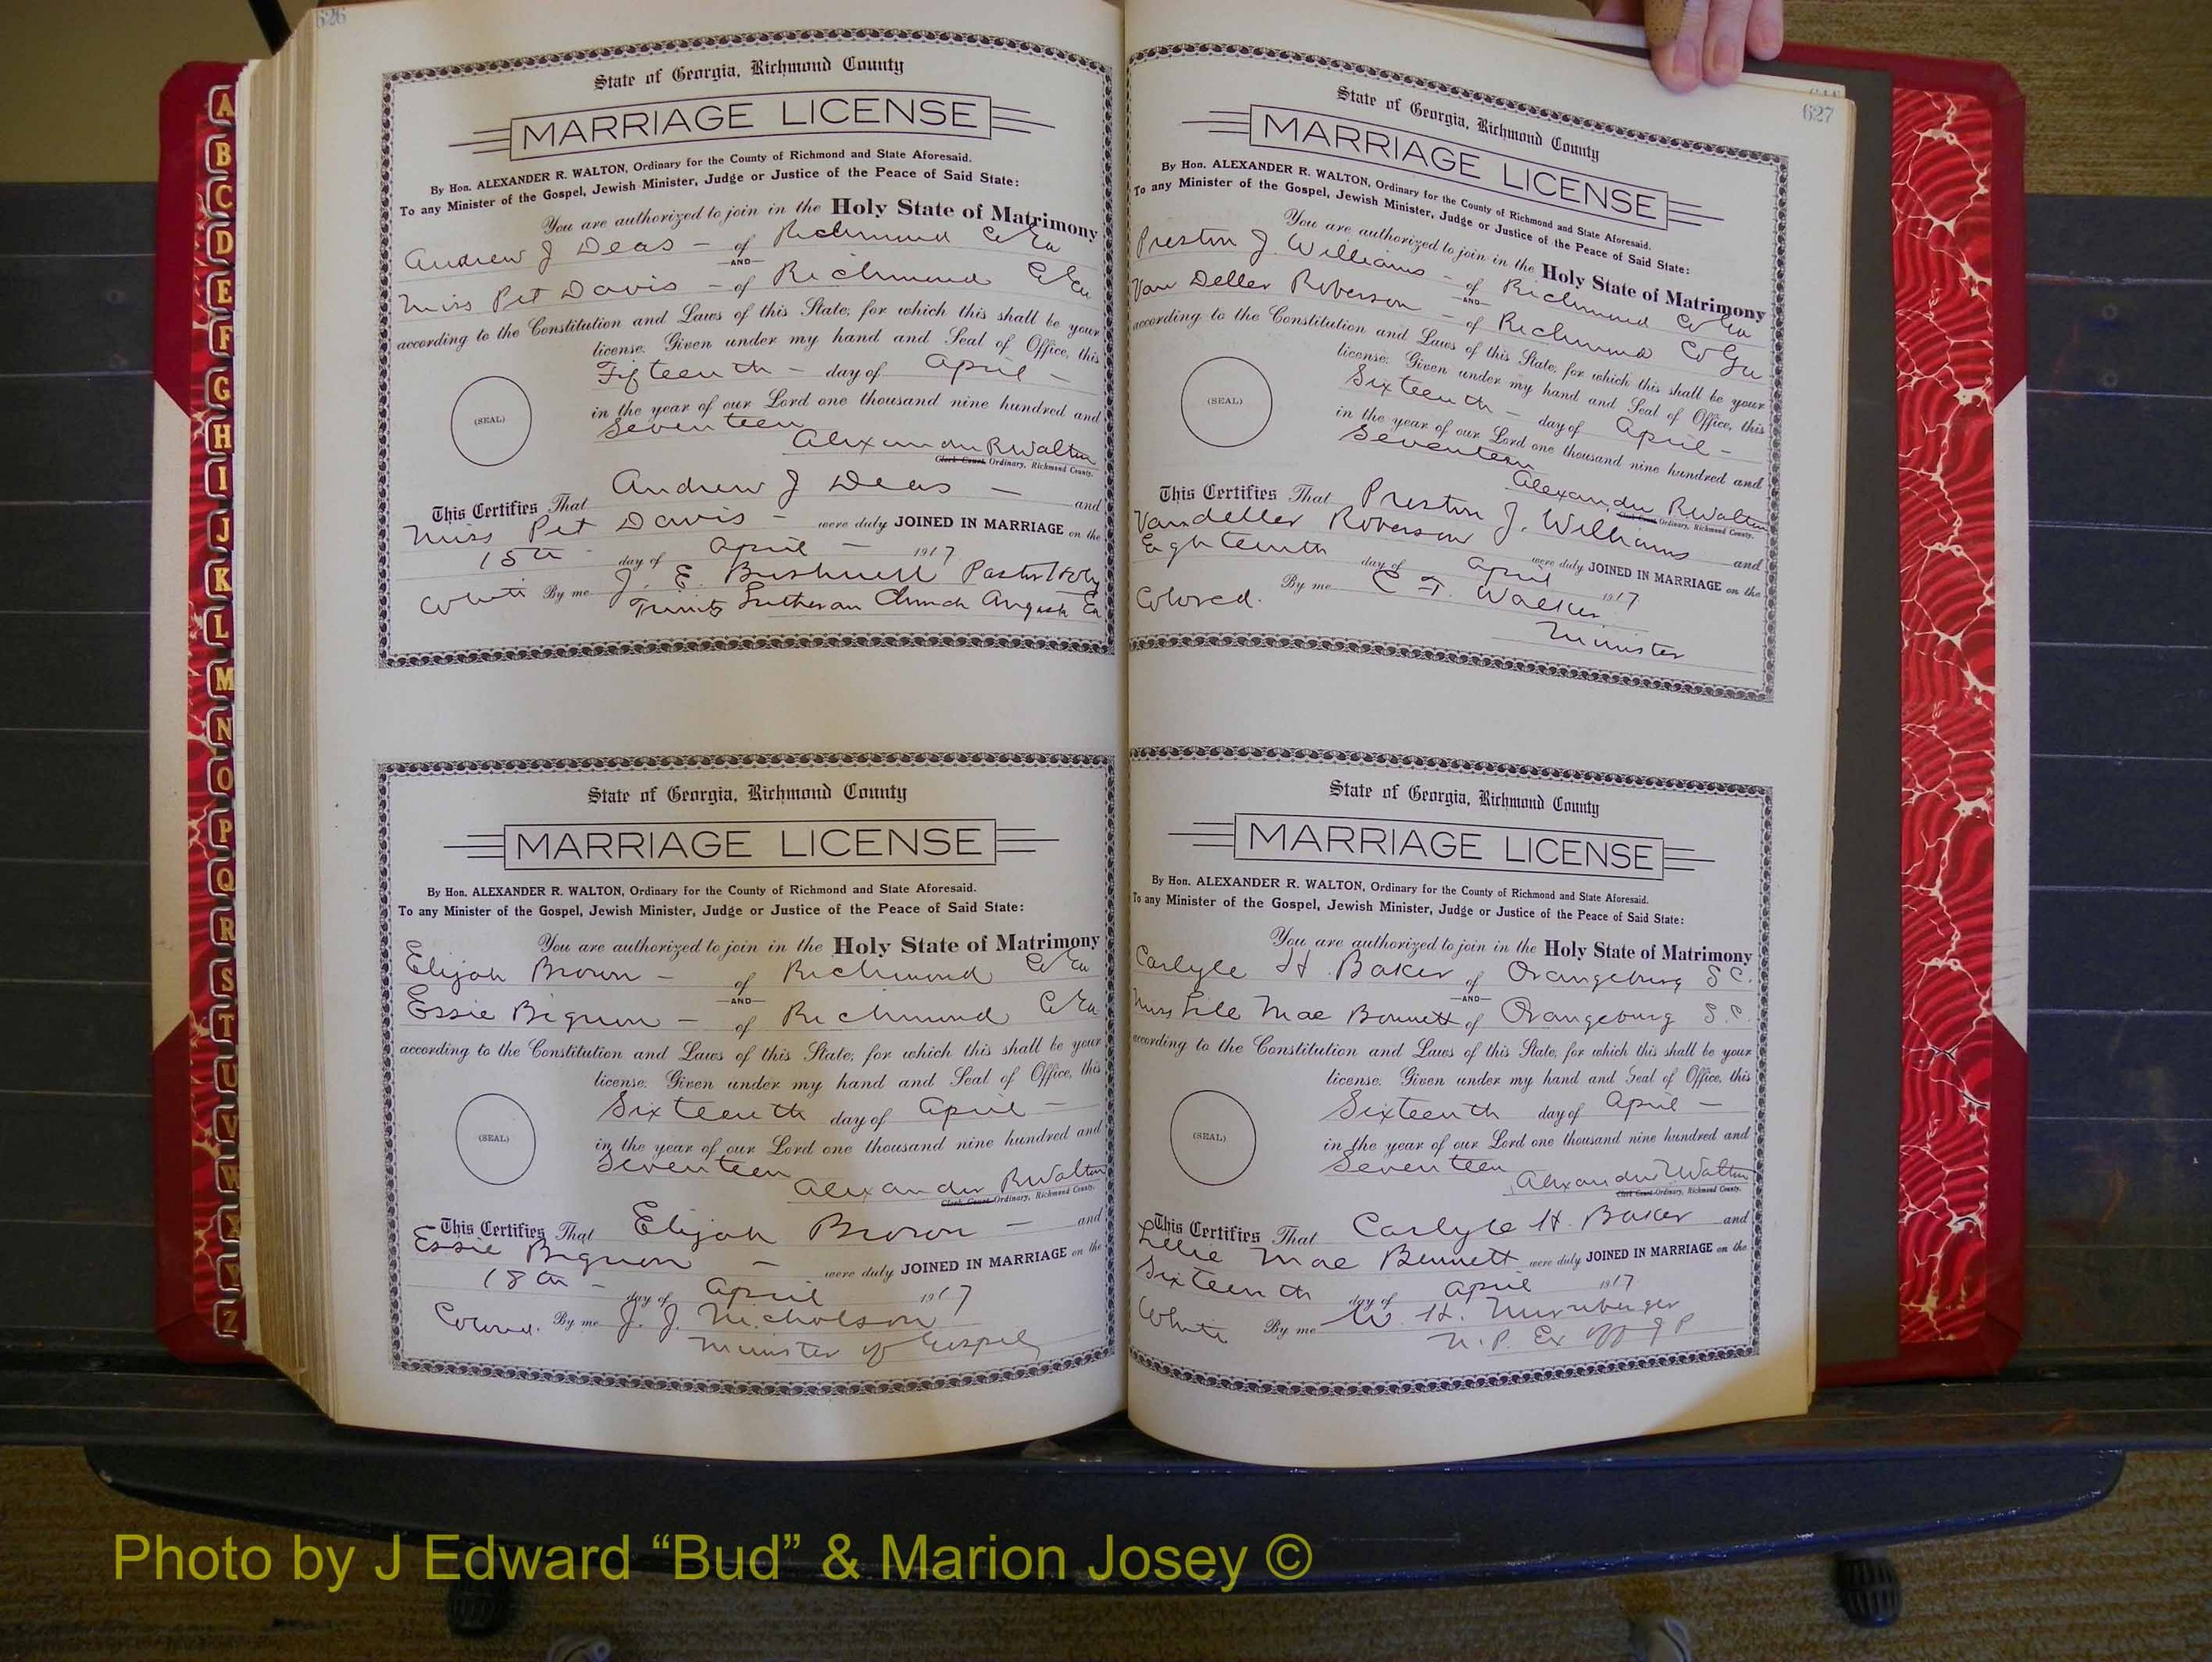 626
State of Georgia, Richmond County
MARRIAGE LICENSE
By Hon. ALEXANDER R. WALTON, Ordinary for the County of Richmond and State Aforesaid.
To any Minister of the Gospel, Jewish Minister, Judge or Justice of the Peace of Said State:
You are authorized to join in the Holy State of Matrimony
Andrew J Deas - of Richmond Co Ga
AND
Miss Pet Davis - of Richmond Co Ga
according to the Constitution and Laws of this State; for which this shall be your
license. Given under my hand and Seal of Office, this
Fifteenth - day of April -
(SEAL)
in the year of our Lord one thousand nine hundred and
Seventeen
Alexander R Walton
Clerk Court Ordinary, Richmond County.
This Certifies That Andrew J Deas - and
Miss Pet Davis - were duly JOINED IN MARRIAGE on the
15th - day of April - 1917
White By me J. E. Bushnell Pastor Holy
Trinity Lutheran Church Augusta Ga
State of Georgia, Richmond County
MARRIAGE LICENSE
By Hon. ALEXANDER R. WALTON, Ordinary for the County of Richmond and State Aforesaid.
To any Minister of the Gospel, Jewish Minister, Judge or Justice of the Peace of Said State:
You are authorized to join in the Holy State of Matrimony
Elijah Brown - of Richmond Co Ga
AND
Essie Bignon - of Richmond Co Ga
according to the Constitution and Laws of this State; for which this shall be your
license. Given under my hand and Seal of Office, this
Sixteenth day of April -
(SEAL)
in the year of our Lord one thousand nine hundred and
Seventeen
Alexander R Walton
Clerk Court Ordinary, Richmond County.
This Certifies That Elijah Brown - and
Essie Bignon - were duly JOINED IN MARRIAGE on the
18th - day of April 1917
Colored. By me J. J. Nicholson
Minister of Gospel
627
State of Georgia, Richmond County
MARRIAGE LICENSE
By Hon. ALEXANDER R. WALTON, Ordinary for the County of Richmond and State Aforesaid.
To any Minister of the Gospel, Jewish Minister, Judge or Justice of the Peace of Said State:
You are authorized to join in the Holy State of Matrimony
Preston J. Williams - of Richmond Co Ga
AND
Van Deller Roberson - of Richmond Co Ga
according to the Constitution and Laws of this State; for which this shall be your
license. Given under my hand and Seal of Office, this
Sixteenth - day of April -
(SEAL)
in the year of our Lord one thousand nine hundred and
Seventeen
Alexander R Walton
Clerk Court Ordinary, Richmond County.
This Certifies That Preston J. Williams and
Vandeller Roberson were duly JOINED IN MARRIAGE on the
Eighteenth day of April 1917
Colored. By me C T. Walker
Minister
State of Georgia, Richmond County
MARRIAGE LICENSE
By Hon. ALEXANDER R. WALTON, Ordinary for the County of Richmond and State Aforesaid.
To any Minister of the Gospel, Jewish Minister, Judge or Justice of the Peace of Said State:
You are authorized to join in the Holy State of Matrimony
Carlyle H. Baker of Orangeburg S C.
AND
Miss Mae of Orangeburg S. C.
according to the Constitution and Laws of this State; for which this shall be your
license. Given under my hand and Seal of Office, this
Sixteenth day of April -
(SEAL)
in the year of our Lord one thousand nine hundred and
Seventeen
Alexander R Walton
Clerk Court Ordinary, Richmond County.
This Certifies That Carlyle H. Baker and
Lillie Mae Bennett were duly JOINED IN MARRIAGE on the
Sixteenth day of April 1917
White By me W. H. Nurnberger
N. P. Ex off J P
A
B
C
D
E
F
G
H
I
J
K
L
M
N
O
P
Q
R
S
T
U
V
W
X
Y
Z
Photo by J Edward “Bud” & Marion Josey ©